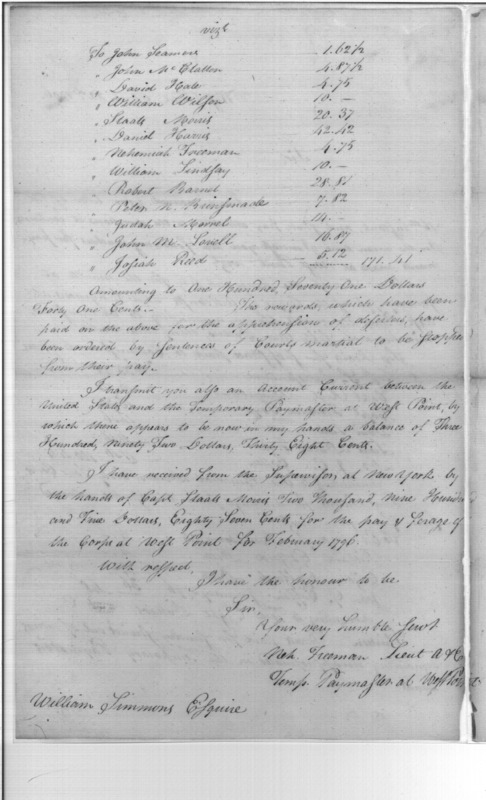 vizt
To John Seamore 1.62½
" John McClallen 4.87½
" David Hale 4.75
" William Wilson 10.—
" Staats Morris 20.37
" Daniel Harris 42.42
" Nehemiah Freeman 4.75
" William Lindsay 10.—
" Robert 28.81
" Peter N. Brinsmade 7.82
" Judah 14.—
" John M. Lovell 16.87
" Josiah Reed 5.12 171.41
Amounting to One Hundred Seventy One Dollars
Forty One Cents. The rewards, which have been
paid on the above for the apprehension of deserters, have
been ordered by Sentences of Courts martial to be stopped
from their pay.
I transmit you also an Account Current between the
United States and the Temporary Paymaster at West Point, by
which there appears to be now in my hands a balance of Three
Hundred, Ninety Two Dollars, Thirty Eight Cents.
I have received from the Supervisor, at New York by
the hands of Capt. Staats Morris Two Thousand, Nine Hundred
and Nine Dollars, Eighty Seven Cents for the pay & forage of
the Corps at West Point for February 1796.
With respect,
I have the honour to be.
Sir,
Your very humble Servt.
Neh. Freeman Lieut A & E
Temp. Paymaster at West Point
William Simmons Esquire